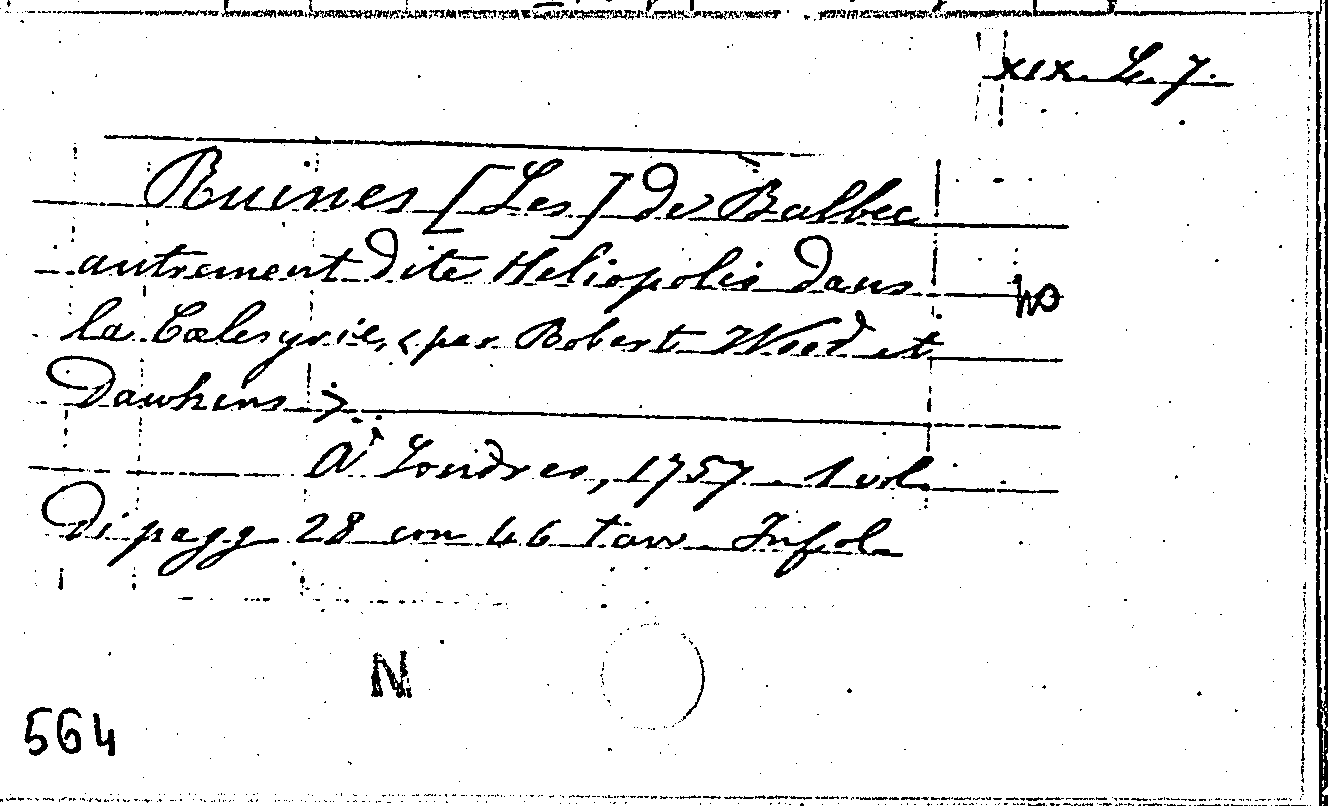 XIX. L. 7.
Ruines [Les] de Balbec
autrement dite Heliopolis dans
la Cœlesyrie, <par Robert Wood et
Dawkins>.
A Londres, 1757. 1 vol.
di pagg. 28 con 46 tav. Infol.
N
564